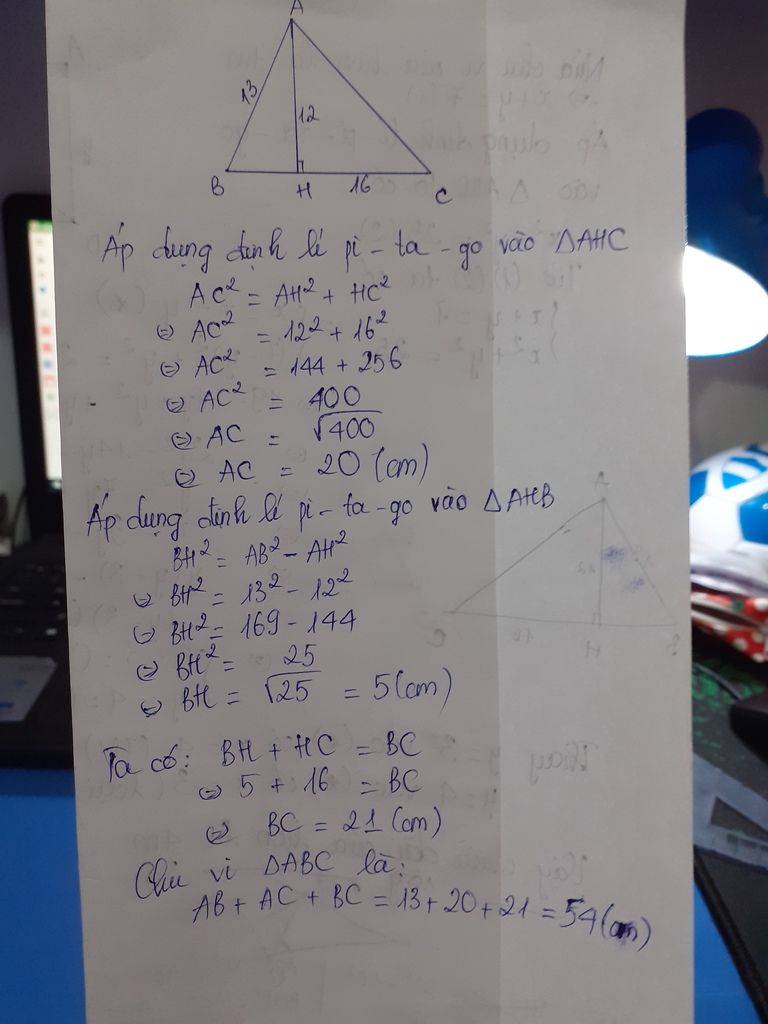 A
13
12
B
H
16
C
Áp dụng định lí pi-ta-go vào ΔAHC
AC² = AH² + HC²
⇔ AC² = 12² + 16²
⇔ AC² = 144 + 256
⇔ AC² = 400
⇔ AC = √400
⇔ AC = 20 (cm)
Áp dụng định lí pi-ta-go vào ΔAHB
BH² = AB² - AH²
⇔ BH² = 13² - 12²
⇔ BH² = 169 - 144
⇔ BH² = 25
⇔ BH = √25 = 5 (cm)
Ta có: BH + HC = BC
⇔ 5 + 16 = BC
⇔ BC = 21 (cm)
Chu vi ΔABC là:
AB + AC + BC = 13 + 20 + 21 = 54 (cm)